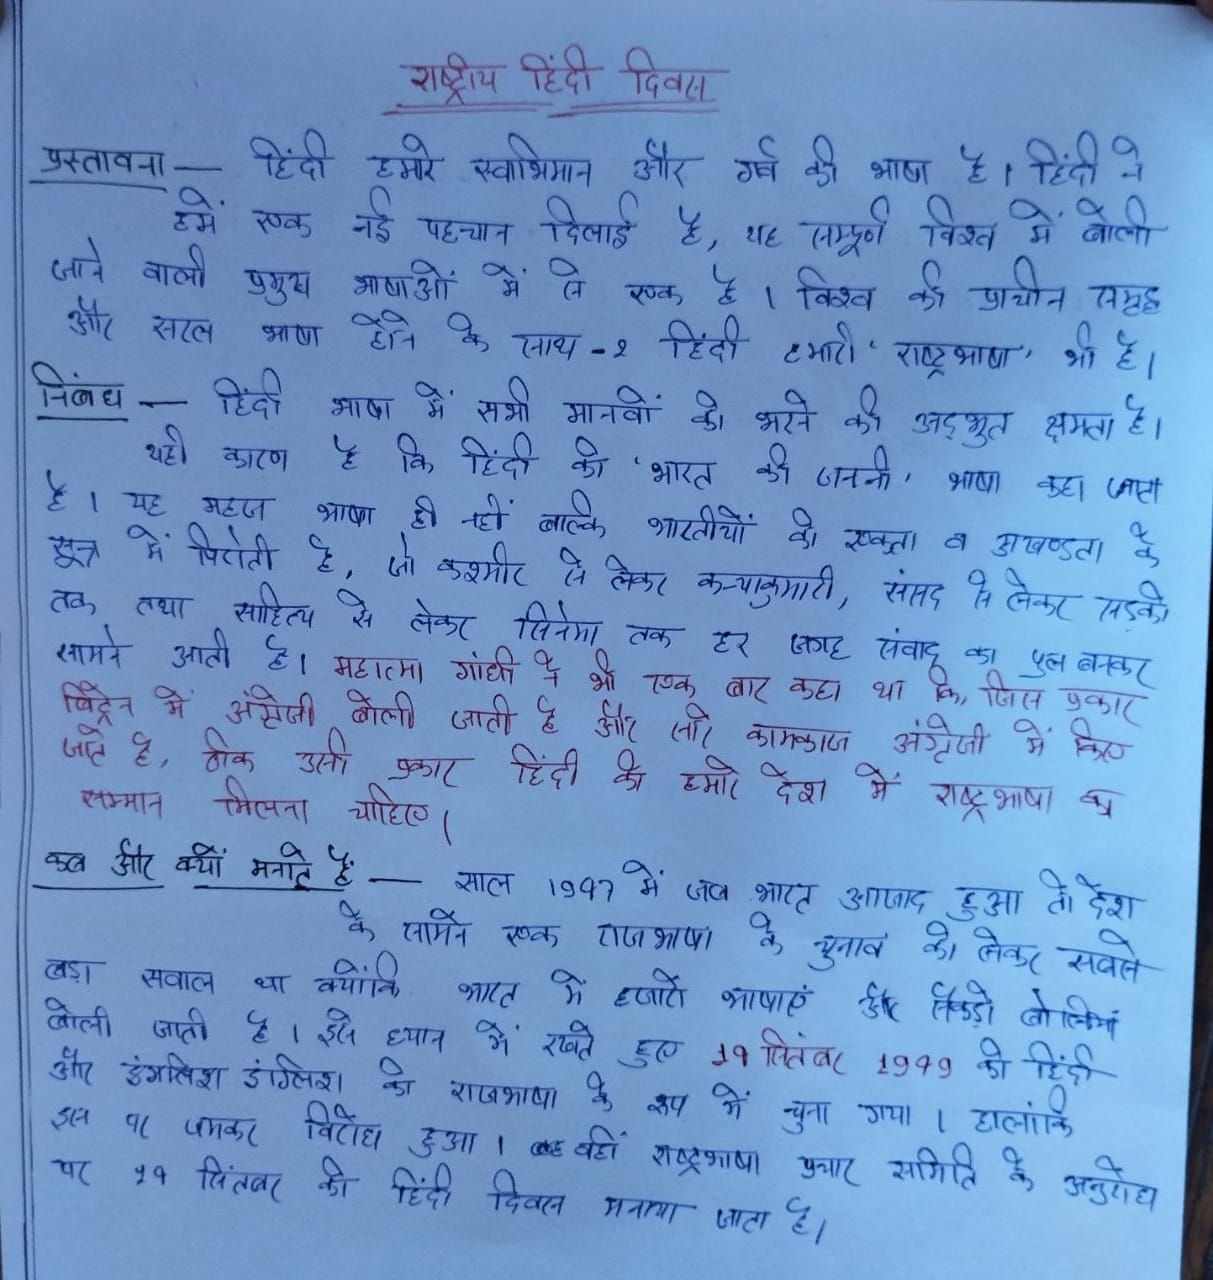 राष्ट्रीय हिंदी दिवस
प्रस्तावना — हिंदी हमारे स्वाभिमान और गर्व की भाषा है। हिंदी ने
हमें एक नई पहचान दिलाई है, यह सम्पूर्ण विश्व में बोली
जाने वाली प्रमुख भाषाओं में से एक है। विश्व की प्राचीन समृद्ध
और सरल भाषा होने के साथ-२ हिंदी हमारी 'राष्ट्रभाषा' भी है।
निबंध — हिंदी भाषा में सभी मानवों को भरने की अद्भुत क्षमता है।
यही कारण है कि हिंदी को 'भारत की जननी' भाषा कहा जाता
है। यह महज भाषा ही नहीं बल्कि भारतीयों को एकता व अखण्डता के
सूत्र में पिरोती है, जो कश्मीर से लेकर कन्याकुमारी, संसद से लेकर सड़को
तक तथा साहित्य से लेकर सिनेमा तक हर जगह संवाद का पुल बनकर
सामने आती है। महात्मा गांधी ने भी एक बार कहा था कि, जिस प्रकार
ब्रिट्रेन में अंग्रेजी बोली जाती है और सारे कामकाज अंग्रेजी में किए
जाते है, ठीक उसी प्रकार हिंदी को हमारे देश में राष्ट्रभाषा का
सम्मान मिलना चाहिए।
कब और क्यों मनाते हैं — साल 1947 में जब भारत आजाद हुआ तो देश
के सामने एक राजभाषा के चुनाव को लेकर सबसे
बड़ा सवाल था क्योंकि भारत में हजारों भाषाएं और सैकड़ो बोलियां
बोली जाती है। इसे ध्यान में रखते हुए 14 सितंबर 1949 को हिंदी
और इंगलिश इंग्लिश को राजभाषा के रूप में चुना गया। हालांकि
इस पर जमकर विरोध हुआ। वहीं राष्ट्रभाषा प्रचार समिति के अनुरोध
पर 14 सितंबर को हिंदी दिवस मनाया जाता है।